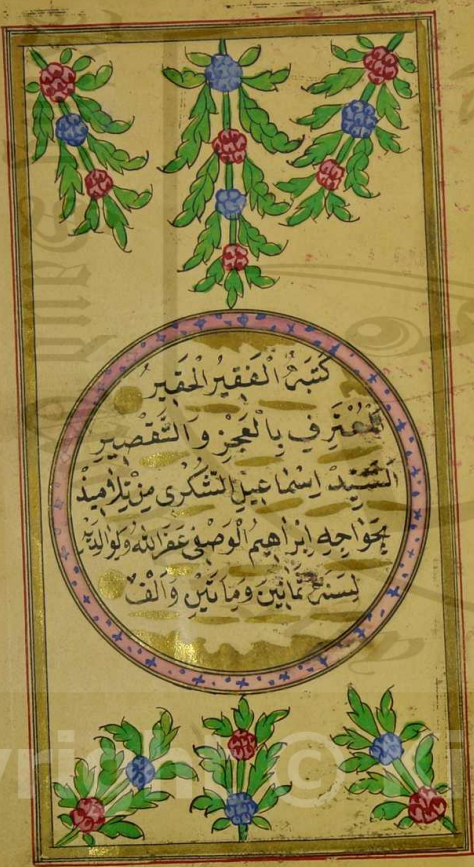 كَتَبَهُ الْفَقِيرُ الْحَقِيرُ
الْمُعْتَرِفِ بِالْعَجْزِ وَالتَّقْصِيرِ
السَّيِّدْ اِسْمَاعِيلِ الشُّكْرِى مِنْ تِلَامِيذْ
خَوَاجِهِ اِبْرَاهِيمُ الْوَصْفِى غَفَرَ اللهُ وَلِوَالِدَيْهِ
لِسَنَةِ ثَمَانِينَ وَمِاتَيْنِ وَاَلْفْ